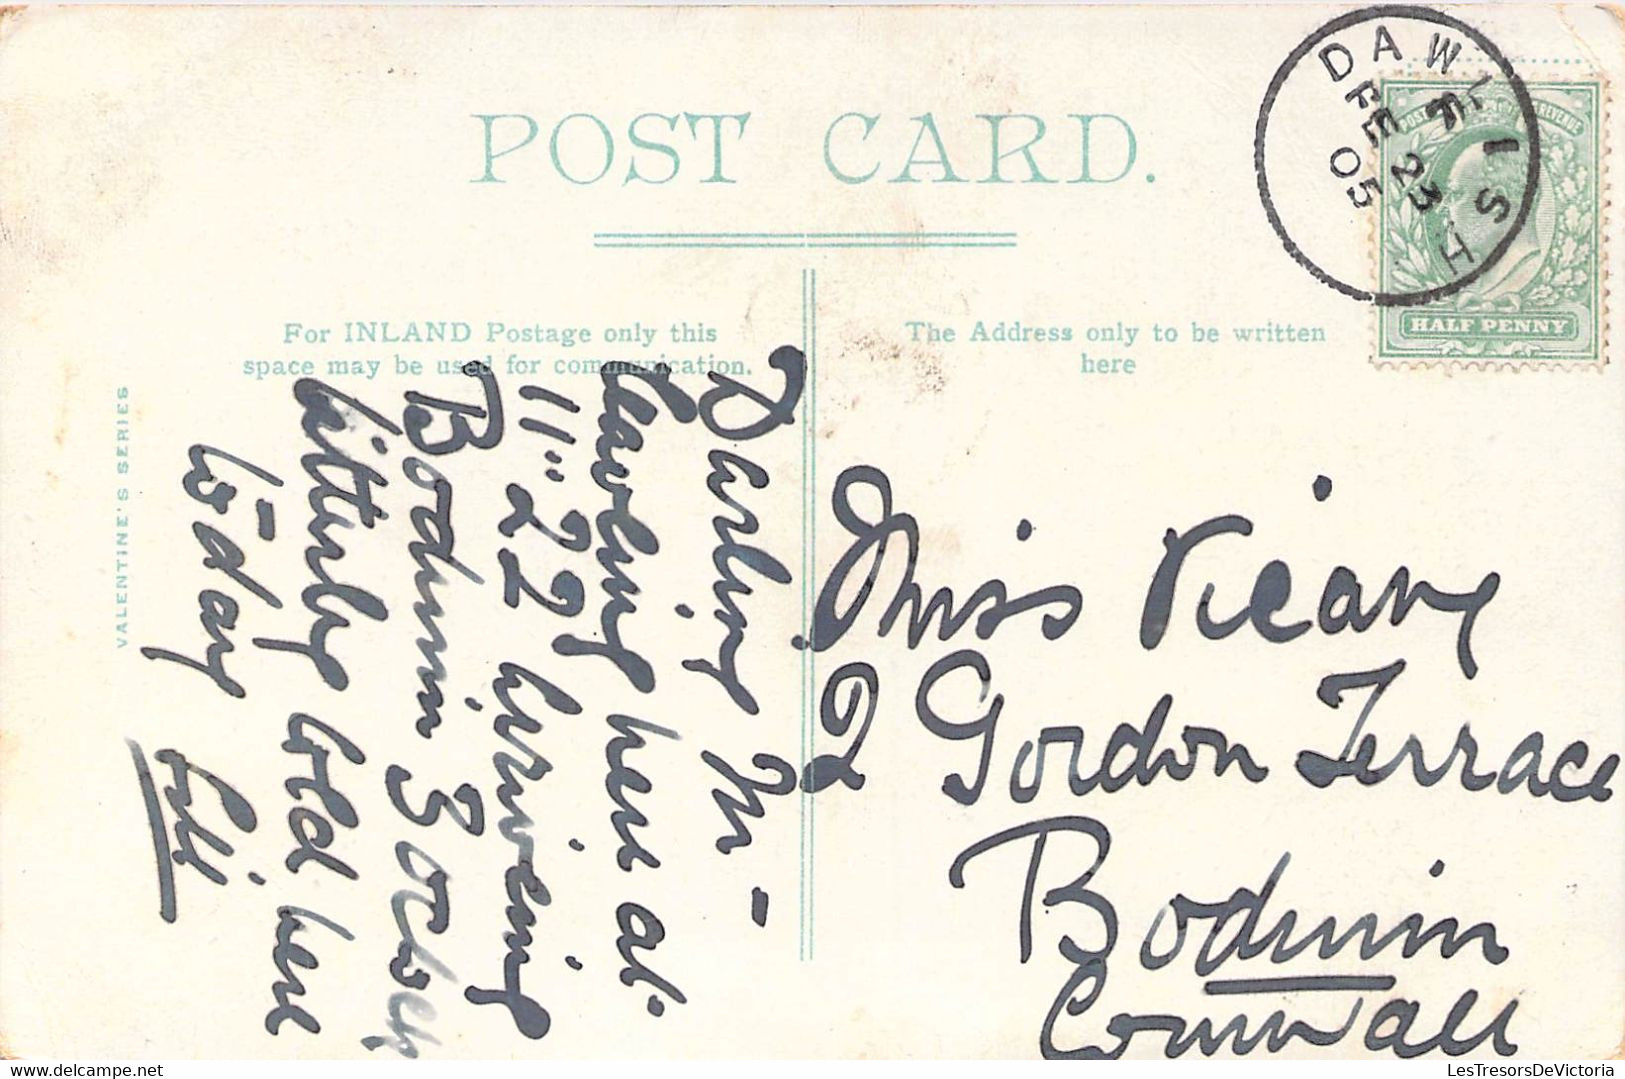 POST CARD.
For INLAND Postage only this
space may be used for communication.
The Address only to be written
here
VALENTINE'S SERIES
DAWLISH
FE 23
05
POSTAGE REVENUE
HALF PENNY
Darling M-
Leaving here at
11"22 arriving
Bodmin 3 oclock
bitterly cold here
to-day
Miss Vicary
2 Gordon Terrace
Bodmin
Cornwall
LesTresorsDeVictoria.com